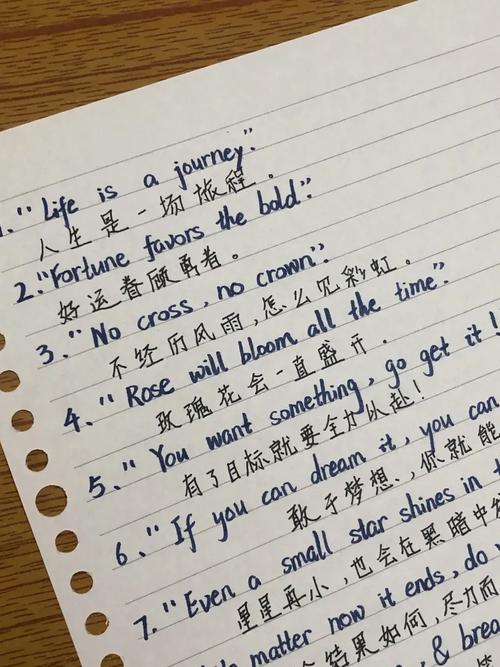 1. "Life is a journey".
人生是一场旅程。
2. "Fortune favors the bold".
好运眷顾勇者。
3. "No cross, no crown".
不经历风雨,怎么见彩虹。
4. "Rose will bloom all the time".
玫瑰花会一直盛开。
5. "You want something, go get it!
有了目标就要全力以赴!
6. "If you can dream it, you can
敢于梦想,你就能
7. "Even a small star shines in
星星再小,也会在黑暗中
matter now it ends, do
结果如何,尽力而
& brea